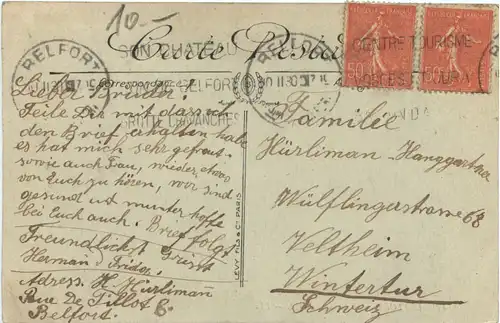 10.-
Carte Postale
Correspondance
BELFORT
SON CHATEAU
BELFORT
ROUTE
CONTRE TOURISME
50
50
Lieber Bruder
Teile Dir mit dass ich
den Brief erhalten habe
es hat mich sehr gefreut.
sowie auch Frau, wieder etwas
von Euch zu hören, wir sind
gesund u munter hoffe
bei Euch auch. Brief folgt
Freundlichst Grüsst
Herman Frider.
Adress. H. Hürliman
Rue De Tillot 6.
Belfort.
LEVY FILS & Cie PARIS
Familie
Hürliman-Hanggartner
Wülflingerstrasse 68
Veltheim
Wintertur
Schweiz